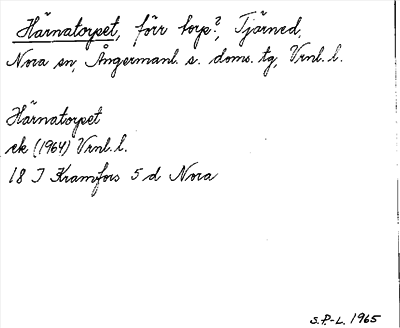 Härnatorpet, förr torp?, Tjärned,
Nora sn, Ångermanl. s. doms. tg, Vrnl. l.
Härnatorpet
ek (1964) Vrnl. l.
18 I Kramfors 5 d Nora
S.P-L. 1965